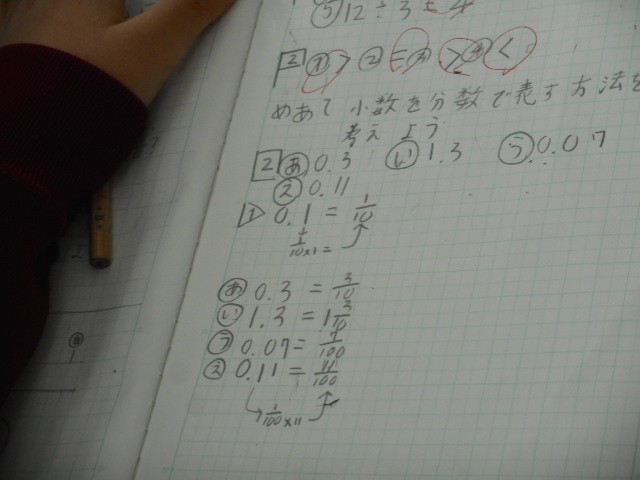 ⑤ 12÷3=4
2 ① > ② = ③ > ④ <
めあて 小数を分数で表す方法を
考えよう
2 あ 0.3 い 1.3 う 0.07
え 0.11
1 0.1 = 1/10
1/10×1=
あ 0.3 = 3/10
い 1.3 = 1 3/10
う 0.07 = 7/100
え 0.11 = 11/100
1/100×11